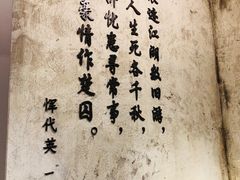 迹江湖数旧游，
人生死各千秋，
忧患寻常事，
豪情作楚囚。
恽代英